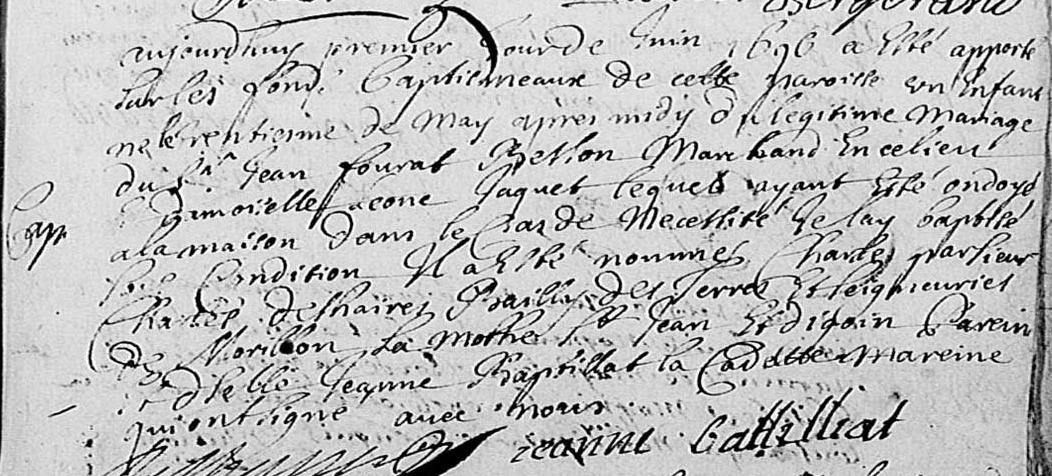 aujourdhuy premier Jour de Juin 1696 a esté apporté
sur les fonds baptismeaux de cette paroisse un Enfant
né le trentiesme de May apres midy du legitime Mariage
du Sr Jean fourat Marchand En ce lieu
& damoiselle Jaquet lequel ayant Esté ondoyé
a la maison dans le Cas de Necessité Je lay baptisé
sous Condition Il a Esté nommé Charles par sieur
Charles deshaires Bailly des Terres Et seigneuries
de Morillon La Mothe St Jean Et digoin Parein
Et delle Jeanne Baptillat la Cadette Mareine
qui ont signé avec nous
jeanne battilliat